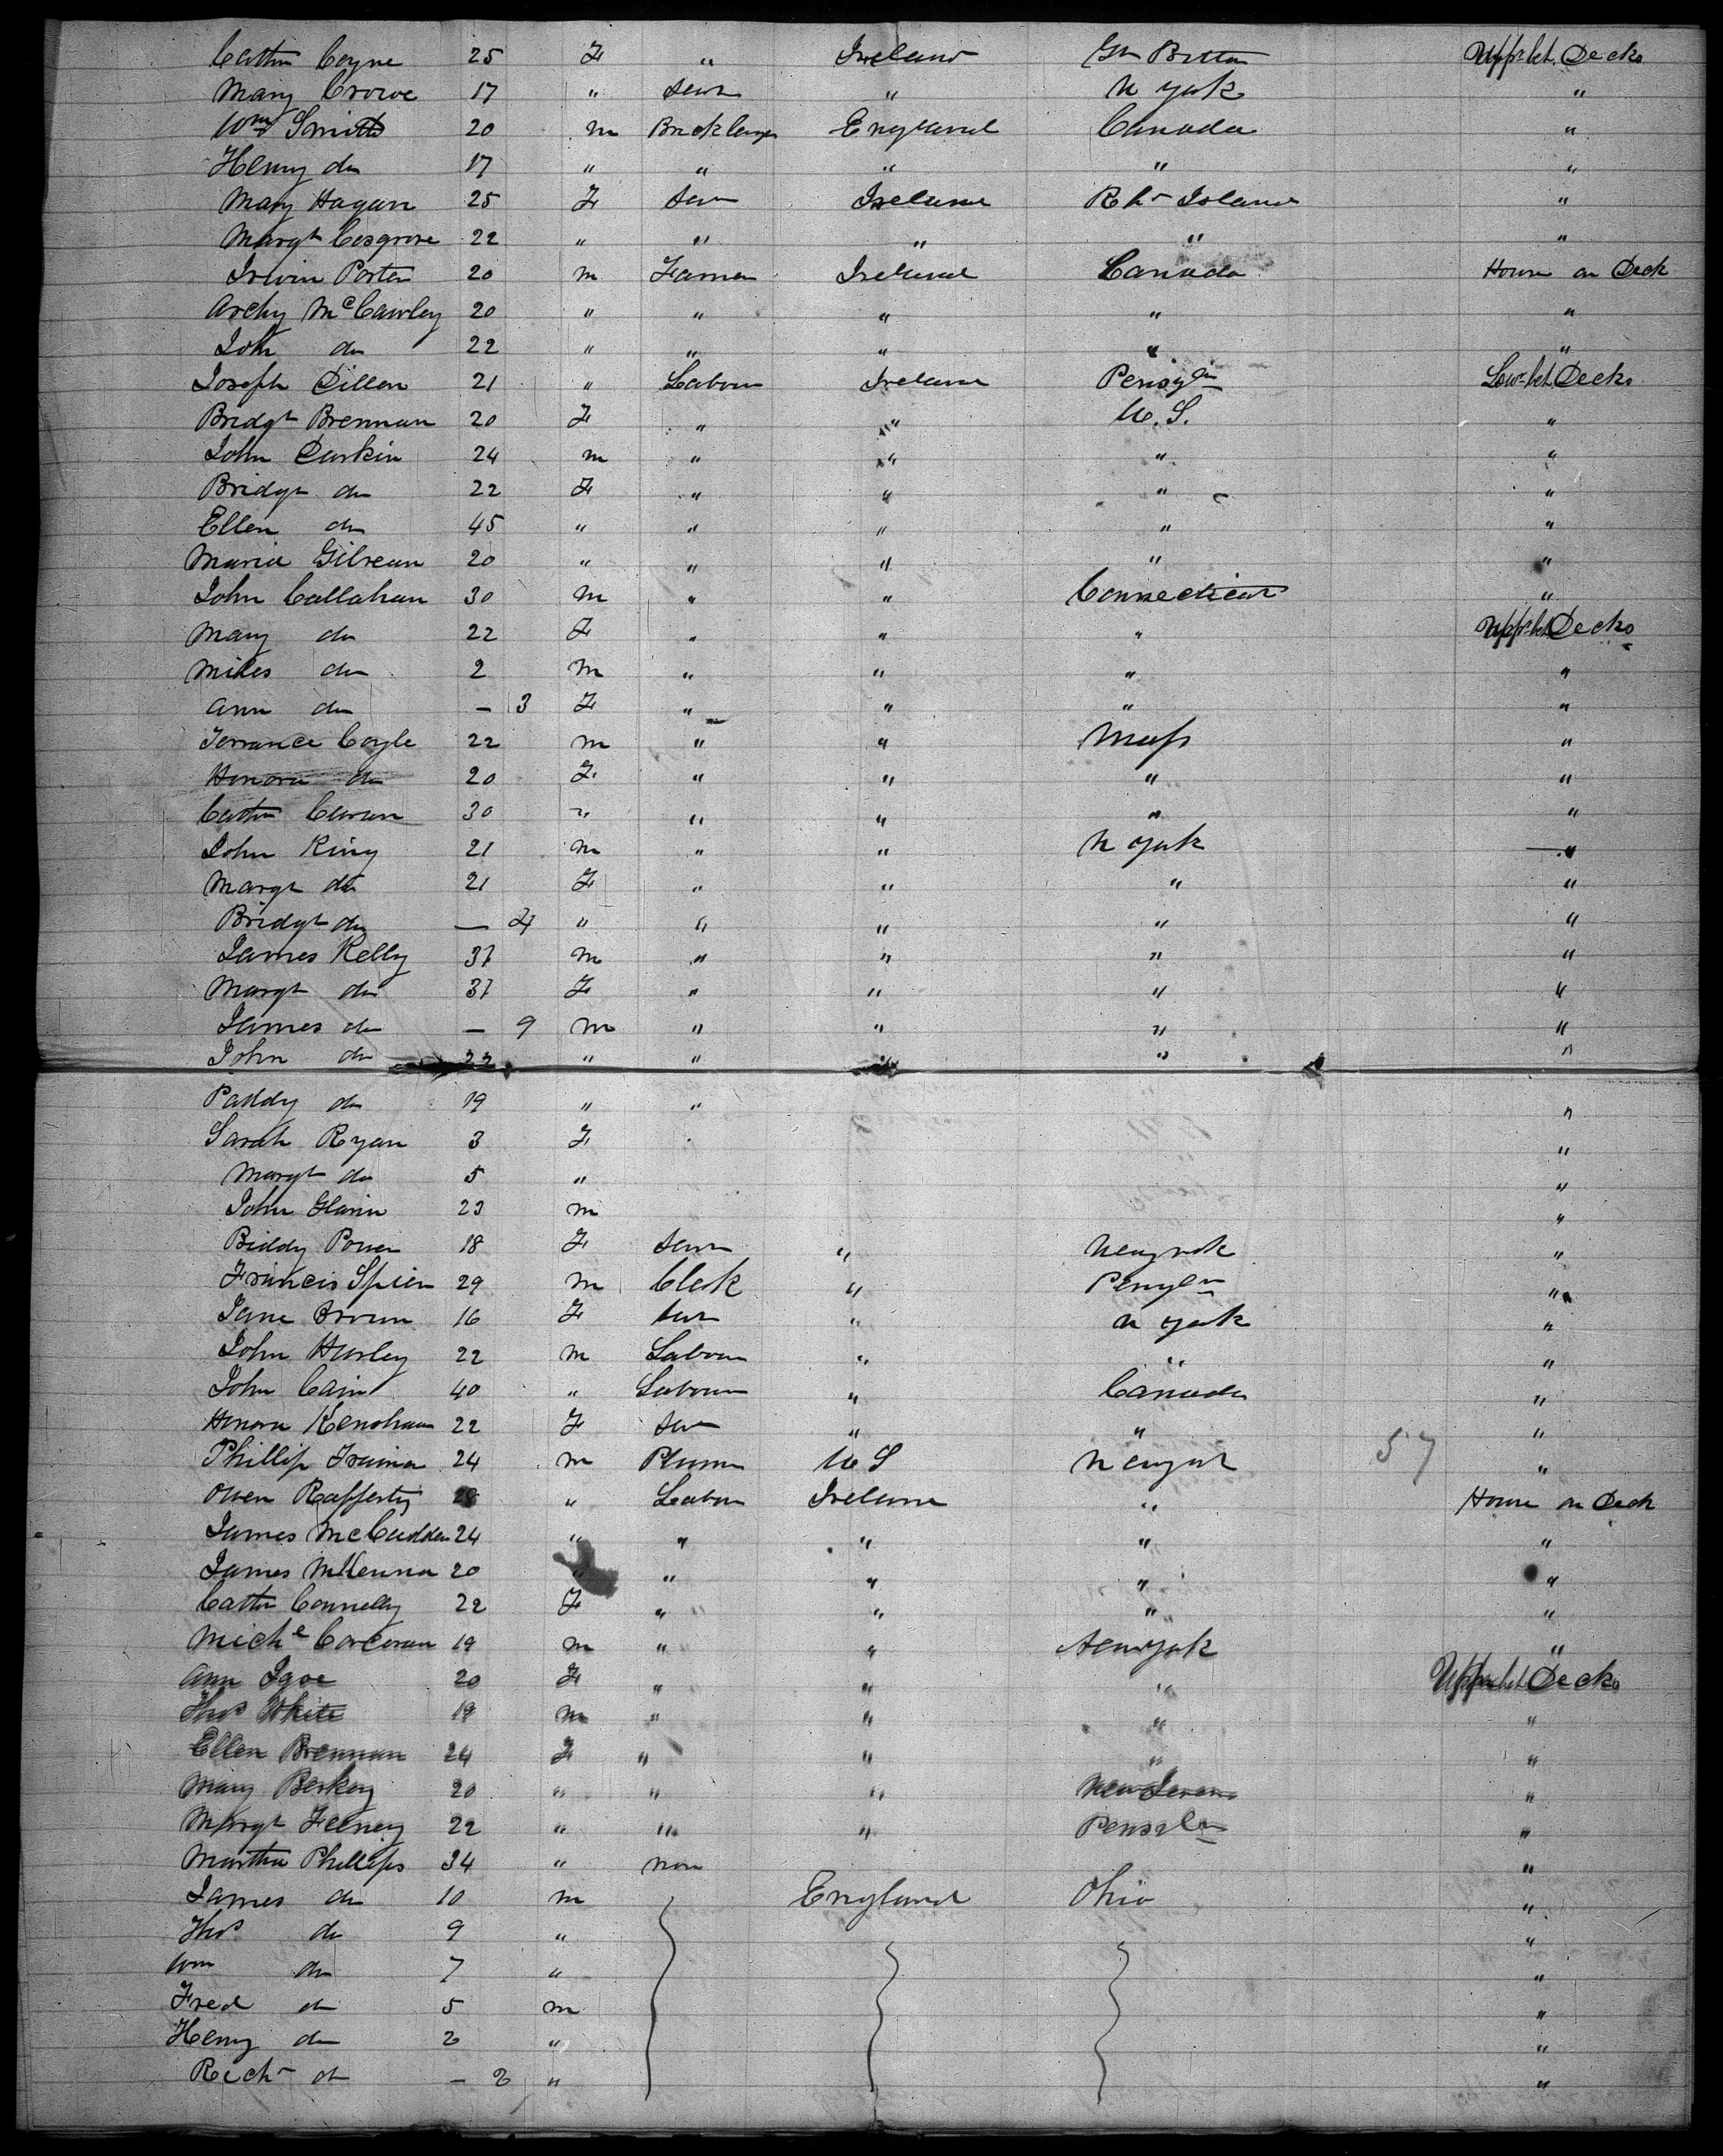 Cathn Coyne 25 F " Ireland Gt Brittn Upp. bet. Decks
Mary Crowe 17 " Servt " N York "
Wm Smith 20 m Bricklayer England Canada "
Henry do 17 " " " " "
Mary Hagan 25 F Serv Ireland Rh Island "
Margt Cosgrove 22 " " " " "
Irwin Porter 20 m Farmer Ireland Canada House on Deck
Archy McCawley 20 " " " " "
John do 22 " " " " "
Joseph Dillon 21 " Labour Ireland Pensyln Low. bet. Decks
Bridgt Brennan 20 F " " U.S. "
John Durkin 24 m " " " "
Bridgt do 22 F " " " "
Ellen do 45 " " " " "
Maria Gilrean 20 " " " " "
John Callahan 30 m " " Connecticut "
Mary do 22 F " " " Upp. bet. Decks
Miles do 2 m " " " "
Ann do – 3 F " " " "
Terrance Coyle 22 m " " Mass "
Honora do 20 F " " " "
Cathn Curran 30 " " " " "
John King 21 m " " N York "
Margt do 21 F " " " "
Bridgt do — 4 " " " " "
James Kelly 37 m " " " "
Margt do 37 F " " " "
James do – 9 m " " " "
John do 22 " " " " "
Paddy do 19 " " "
Sarah Ryan 3 F "
Margt do 5 " "
John Glavin 23 m "
Biddy Power 18 F Servt " Newyork "
Francis Spien 29 m Clerk " Pensyln "
Jane Brown 16 F Servt " N York "
John Hurley 22 m Labour " " "
John Cain 40 " Labour " Canada "
Honora Kenshaw 22 F Serv " " "
Phillip Trainor 24 m Plumr U S Newyork 57 "
Owen Rafferty 28 " Labour Ireland " House on Deck
James McCudden 24 " " " " "
James McKenna 20 " " " " "
Cathn Connelly 22 F " " " "
Miche Corcoran 19 m " " Newyork "
Ann Igoe 20 F " " " Upp. bet. Decks
Thos White 19 m " " " "
Ellen Brennan 24 F " " " "
Mary Berkey 20 " " " "
Margt Feeney 22 " " " Pensyln "
Martha Phillips 34 " non "
James do 10 m England Ohio "
Thos do 9 " "
Wm do 7 " "
Fred do 5 m "
Henry do 2 " "
Richd do – 2 " "